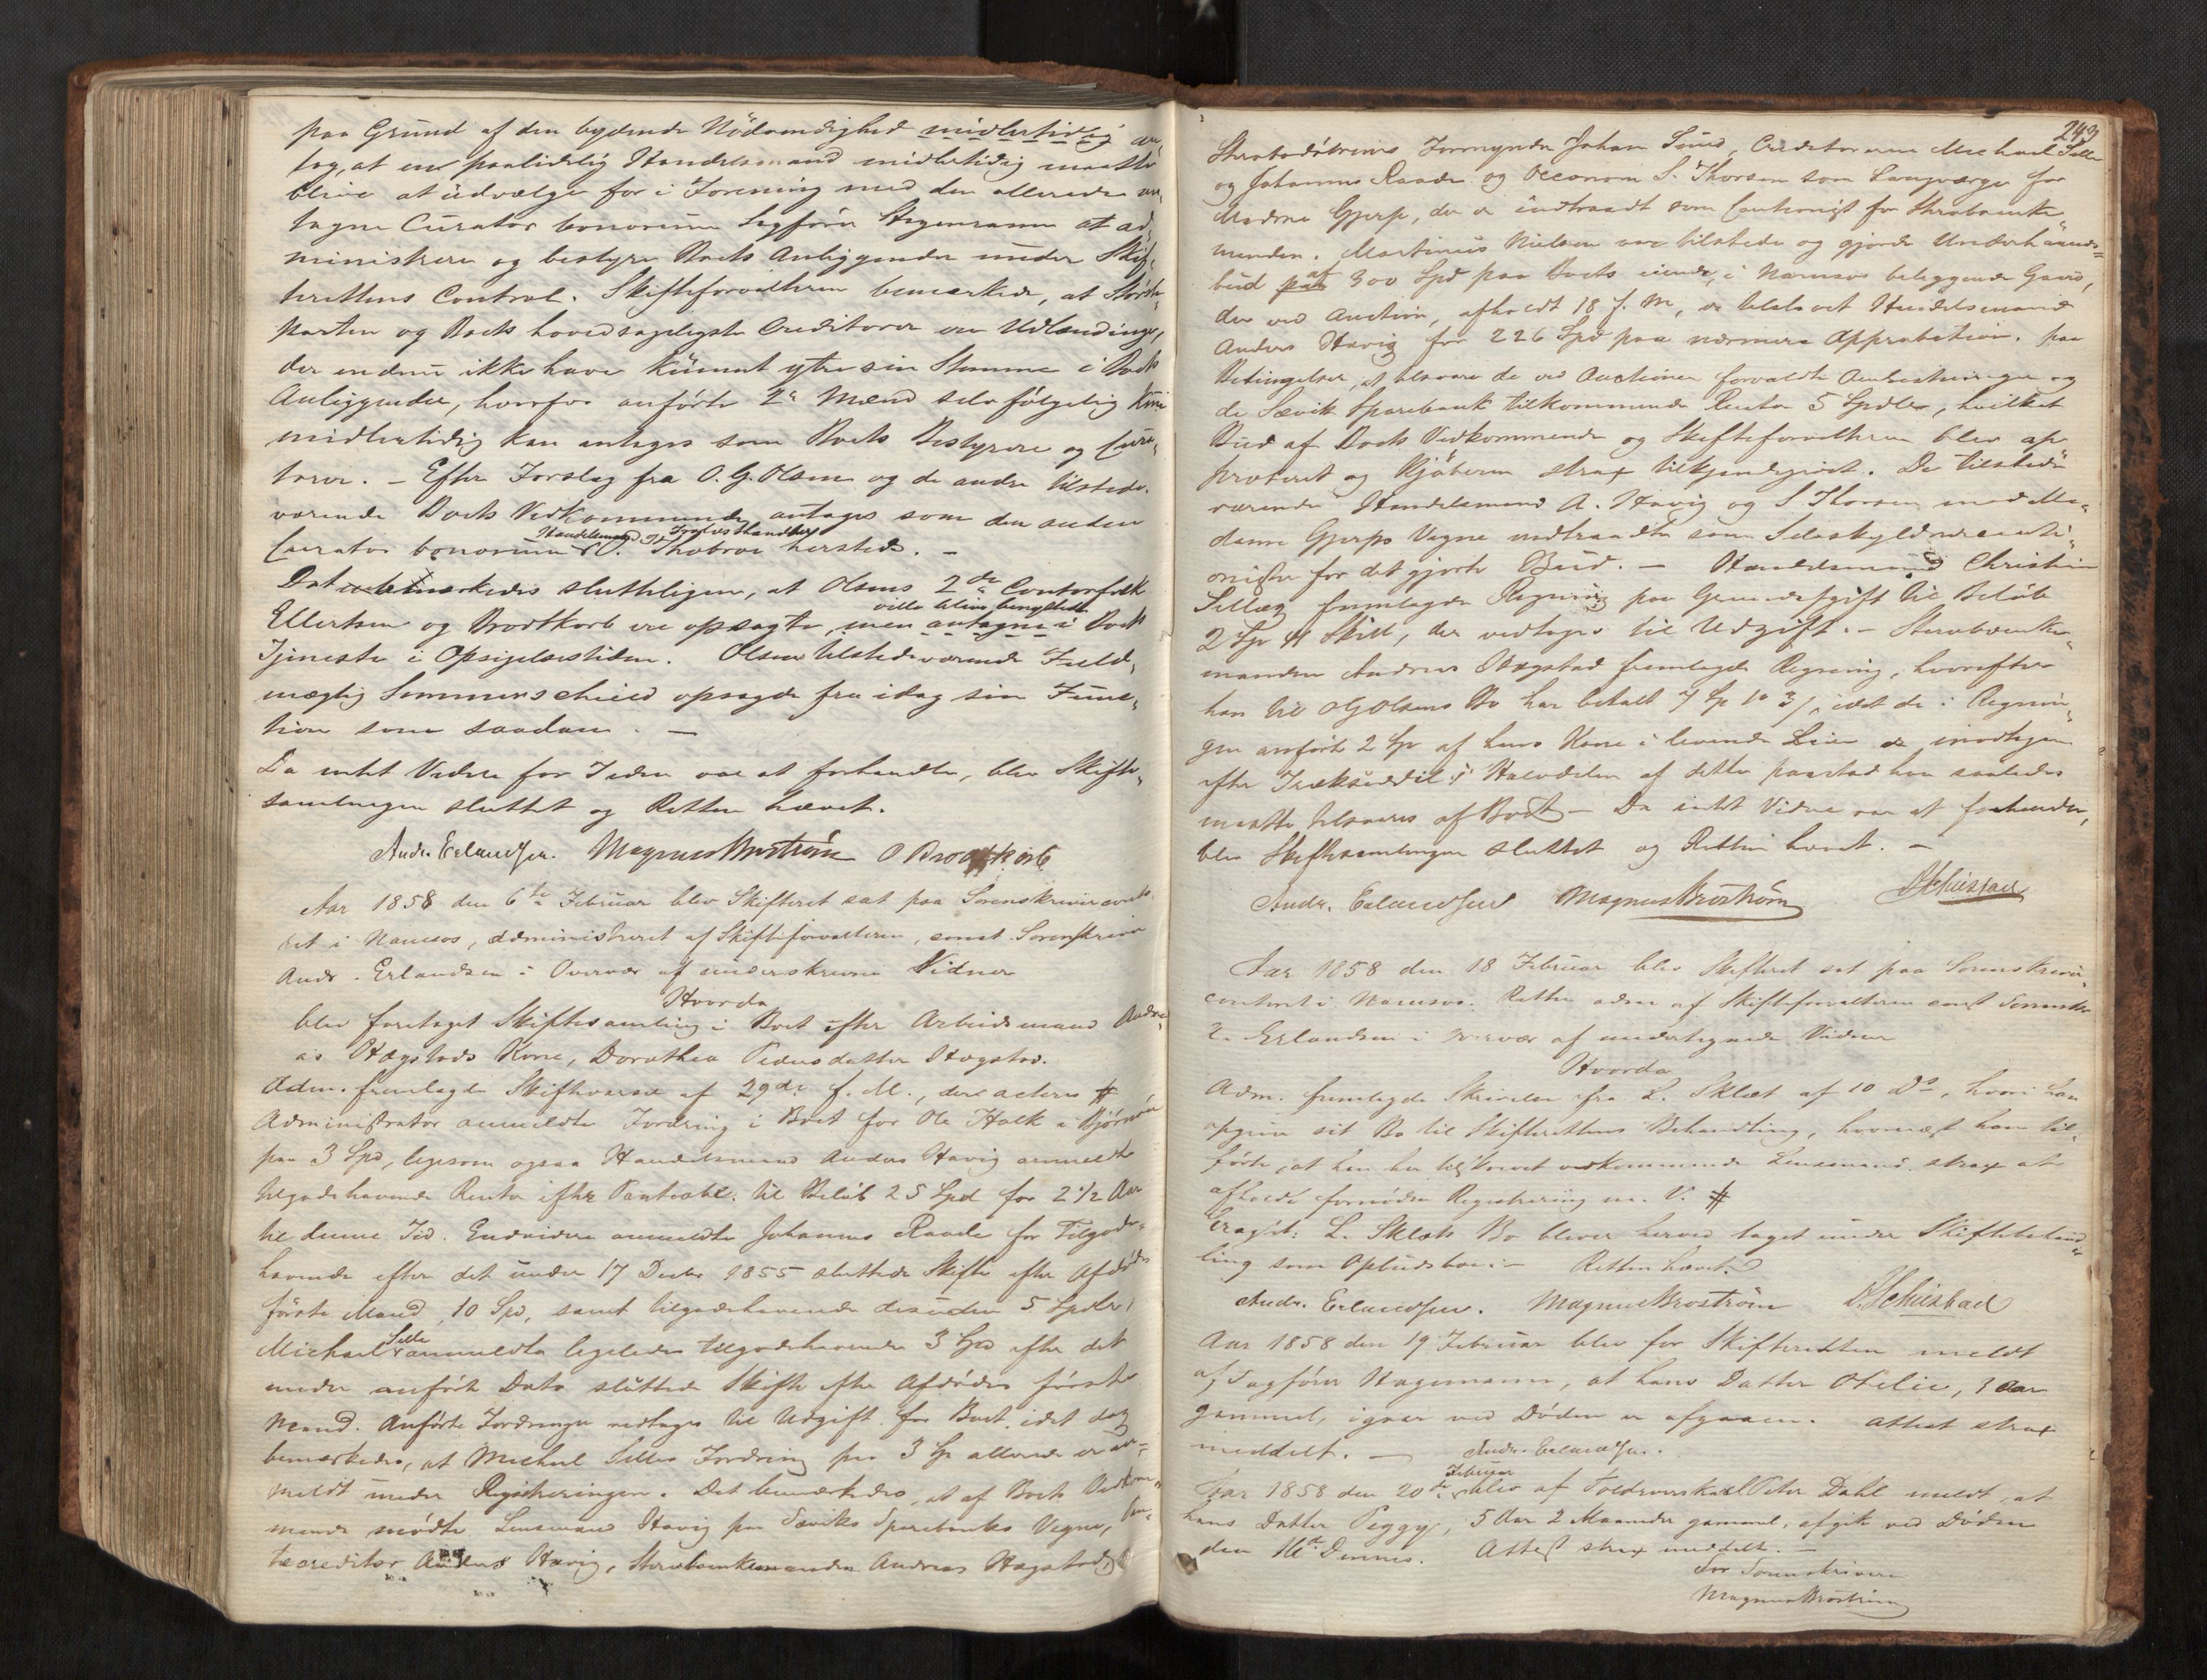 paa Grund af den bydende Nödvendighed midlertidig an,
tog, at en paalidelig Handelsmand midlertidig maatte
blive at udvælge for i Forening med den allerede an,
tagne Curator bonorum Sagförer Hagemann at ad,
ministrere og bestyre Boets Anliggender under Skif,
terettens Control. Skifteforvalteren bemærkede, at Störste
parten og Boets hovedsageligste Creditorer ere Udlændinge,
der endnu ikke have kunnet ytre sin Stemme i Boets
Anliggender, hvorfor anförte 2de Mænd selvfölgelig kun
midlertidig kan antages som Boets Bestyrere og Cura,
torer. – Efter Forslag fra O. G. Olsen og de andre tilstede,
værende Boets Vedkommende antages som den anden
Curator bonorum Handelsmand Thobroe hersteds. –
Det bemærkedes sluttelig, at Olsens 2de Contorfolk
Ellertsen og Brodtkorb ere opsagte, men ville blive benyttede antagne i Boets
Tjeneste i Opsigelsestiden. Olsens tilstedeværende Fuld,
mægtig Sommerschield opsagde fra idag sin Func,
tion som saadan. –
Da intet Videre for Tiden var at forhandle, blev Skifte,
samlingen sluttet og Retten hævet.
Andr. Erlandsen. Magnus Broström O Brodtkorb
Aar 1858 den 6te Februar blev Skifteret sat paa Sorenskriverconto,
ret i Namsos, administreret af Skifteforvalteren, const. Sorenskriver
Andr. Erlandsen i Overvær af underskrevne Vidner
Hvorda
blev foretaget Skiftesamling i Boet efter Arbeidsmand Andre,
as Hægstads Kone, Dorothea Pedersdatter Hægstad.
Adm. fremlagde Skiftevarsel af 29de f. M., der acteres #
Administrator anmeldte Fordring i Boet for Ole Halk a Bjørum
paa 3 Spd, ligesom ogsaa Handelsmand Anders Havig anmeldte
tilgodehavende Renter efter Panteobl. til Beløb 25 Spd for 2 1/2 Aar
til denne Tid. Endvidere anmeldte Johannes Raade for Tilgode,
havende efter det under 17 Decbr 1855 sluttede Skifte efter Afdödes
förste Mand, 10 Spd, samt tilgodehavende desuden 5 Spdlr;
Michael Selle anmeldte ligeledes tilgodehavende 3 Spd efter det
under anförte Dato sluttede Skifte efter Afdödes förste
Mand. Anförte Fordringer vedtages til Udgift for Boet, idet dog
bemærkedes, at Michael Selles Fordring paa 3 Sp allerede er an,
meldt under Registreringen. Det bemærkedes, at af Boets Vedkom,
mende mödte Lensmand Havig paa Sæviks Sparebanks Vegne, Pan,
tecreditor Anders Havig, Sterboenkemanden Andreas Hægstad,
243
Sterbodöttrens Formynder Johan Sund, Creditorerne Michael Selle
og Johannes Raade og Oeconom S. Thorsen som Laugværge for
Madme Gjerp, der er indtraadt som Cautionist for Sterboenke,
manden. Martinus Nielsen var tilstede og gjorde Underhaands=
bud paa af 300 Spd paa Boets eiende, i Namsos beliggende Gaard,
der ved Auction, afholdt 18 f. M, er tilslaaet Handelsmand
Anders Havig for 226 Spd paa nærmere Approbation. paa
Betingelse, at tilsvare de ved Auctionen forvoldte Omkostninger og
de Sævik Sparebank tilkommende Renter 5 Spdlr, hvilket
Bud af Boets Vedkommende og Skifteforvalteren blev ap
proberet og Kjöberen strax tilkjendegivet. De tilstede
værende Handelsmand A. Havig og S. Thorsen, med Ma,
dame Gjerps Vegne indtraadte som Selvskyldnercauti,
onister for det gjorte Bud. – Handelsmand Christian
Sellæg fremlagde Regning paa Grundafgift til Belöb
2 Sp 11 Skill, der vedtages til Udgift. – Sterboenke,
manden Andreas Hægstad fremlagde Regning, hvorefter
han til O G Olsens Bo har betalt 7 Sp 1o 3/, idet de i Regnin,
gen anförte 2 Sp af hans Kone i levende Live er modtagen
efter Træksedel; Halvdelen af dette paastod han saaledes
maatte tilsvares af Boet – Da intet Videre var at forhandle,
blev Skiftesamlingen sluttet og Retten hævet. –
Andr. Erlandsen Magnus Broström
Aar 1858 den 18 Februar blev Skifteret sat paa Sorenskriver,
contoret i Namsos. Retten adm. af Skifteforvalteren const Sorenskr
A. Erlandsen i Overvær af undertegnede Vidner
Hvorda
Adm. fremlagde Skrivelse fra L. Sklæt af 10 Ds, hvori han
opgiver sit Bo til Skifterettens Behandling, hvornæst han til,
förte, at han har tilskrevet vedkommende Lensmand strax at
afholde fornøden Registrering m. V. #
Eragtet: L. Sklæts Bo bliver herved taget under Skiftebehand=
ling som Opbudsbo: – Retten hævet.
Andr. Erlandsen. Magnus Broström
Aar 1858 den 19 Februar blev for Skifteretten meldt
af Sagförer Hagemann, at hans Datter Ofelie, 3 Aar
gammel, igaar ved Döden er afgaaen. Attest strax
meddelt. – Andr. Erlandsen.
Aar 1858 den 20de Februar blev af Toldroerskarl Peter Dahl meldt, at
hans Datter Peggy, 5 Aar 2 Maaneder gammel, afgik ved Döden
den 16de Dennes. Attest strax meddelt. –
For Sorenskriveren
Magnus Broström